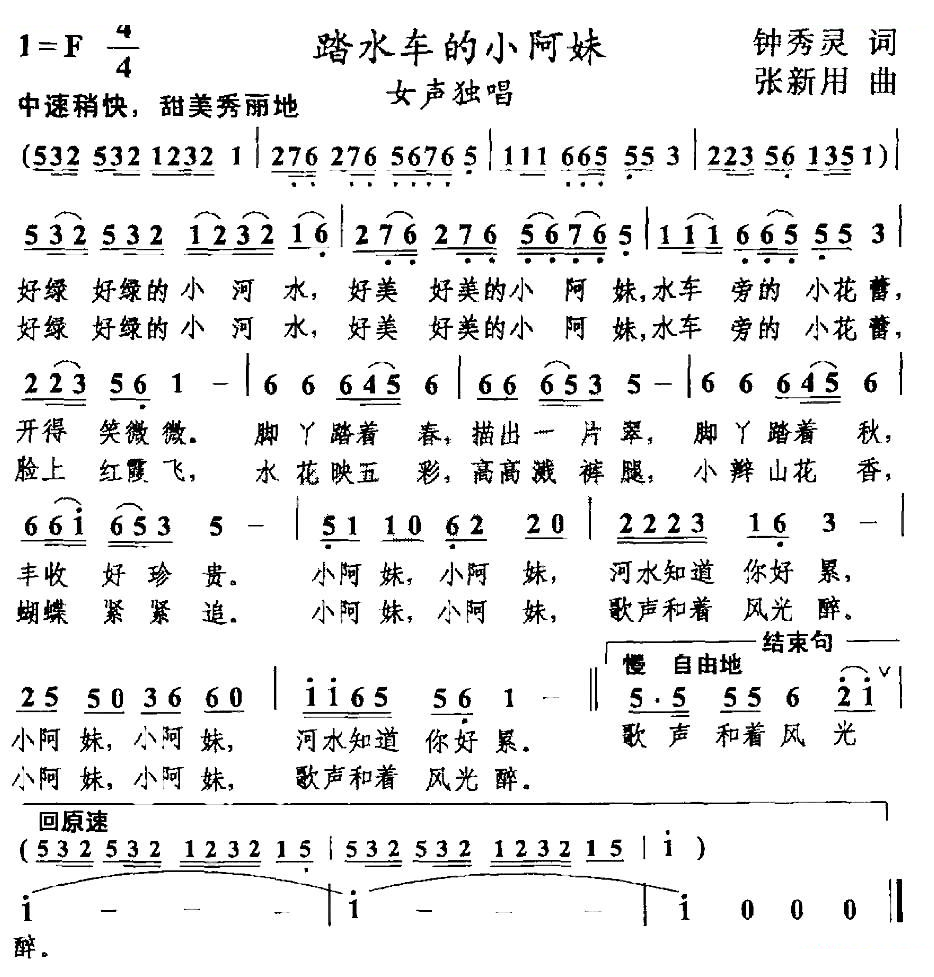 1=F 4/4 踏水车的小阿妹 钟秀灵 词
女声独唱 张新用 曲
中速稍快，甜美秀丽地
(532 532 1232 1 | 276 276 5676 5 | 111 665 55 3 | 223 56 1351)|
532 532 1232 16 | 276 276 5676 5 | 111 665 55 3 |
好绿 好绿的 小 河 水， 好美 好美的小 阿 妹，水车 旁的 小花 蕾，
好绿 好绿的 小 河 水， 好美 好美的小 阿 妹，水车 旁的 小花 蕾，
223 56 1 － | 6 6 645 6 | 66 653 5 － | 6 6 645 6 |
开得 笑微 微。 脚 丫 踏着 春，描出 一 片 翠， 脚 丫 踏着 秋，
脸上 红霞 飞， 水 花 映五 彩，高高 溅 裤 腿， 小 辫 山花 香，
66i 653 5 － | 51 10 62 20 | 2223 16 3 － |
丰收 好 珍 贵。 小阿 妹，小阿 妹， 河水知道 你好 累，
蝴蝶 紧 紧 追。 小阿 妹，小阿 妹， 歌声和着 风光 醉。
结束句
慢 自由地
25 50 36 60 | ii65 56 1 － ‖ 5·5 55 6 2i ∨ |
小阿 妹，小阿 妹， 河水知道 你好 累。 歌 声 和着 风 光
小阿 妹，小阿 妹， 歌声和着 风光 醉。
回原速
(532 532 1232 15 | 532 532 1232 15 | i )
i － － － | i － － － | i 0 0 0 ‖
醉。